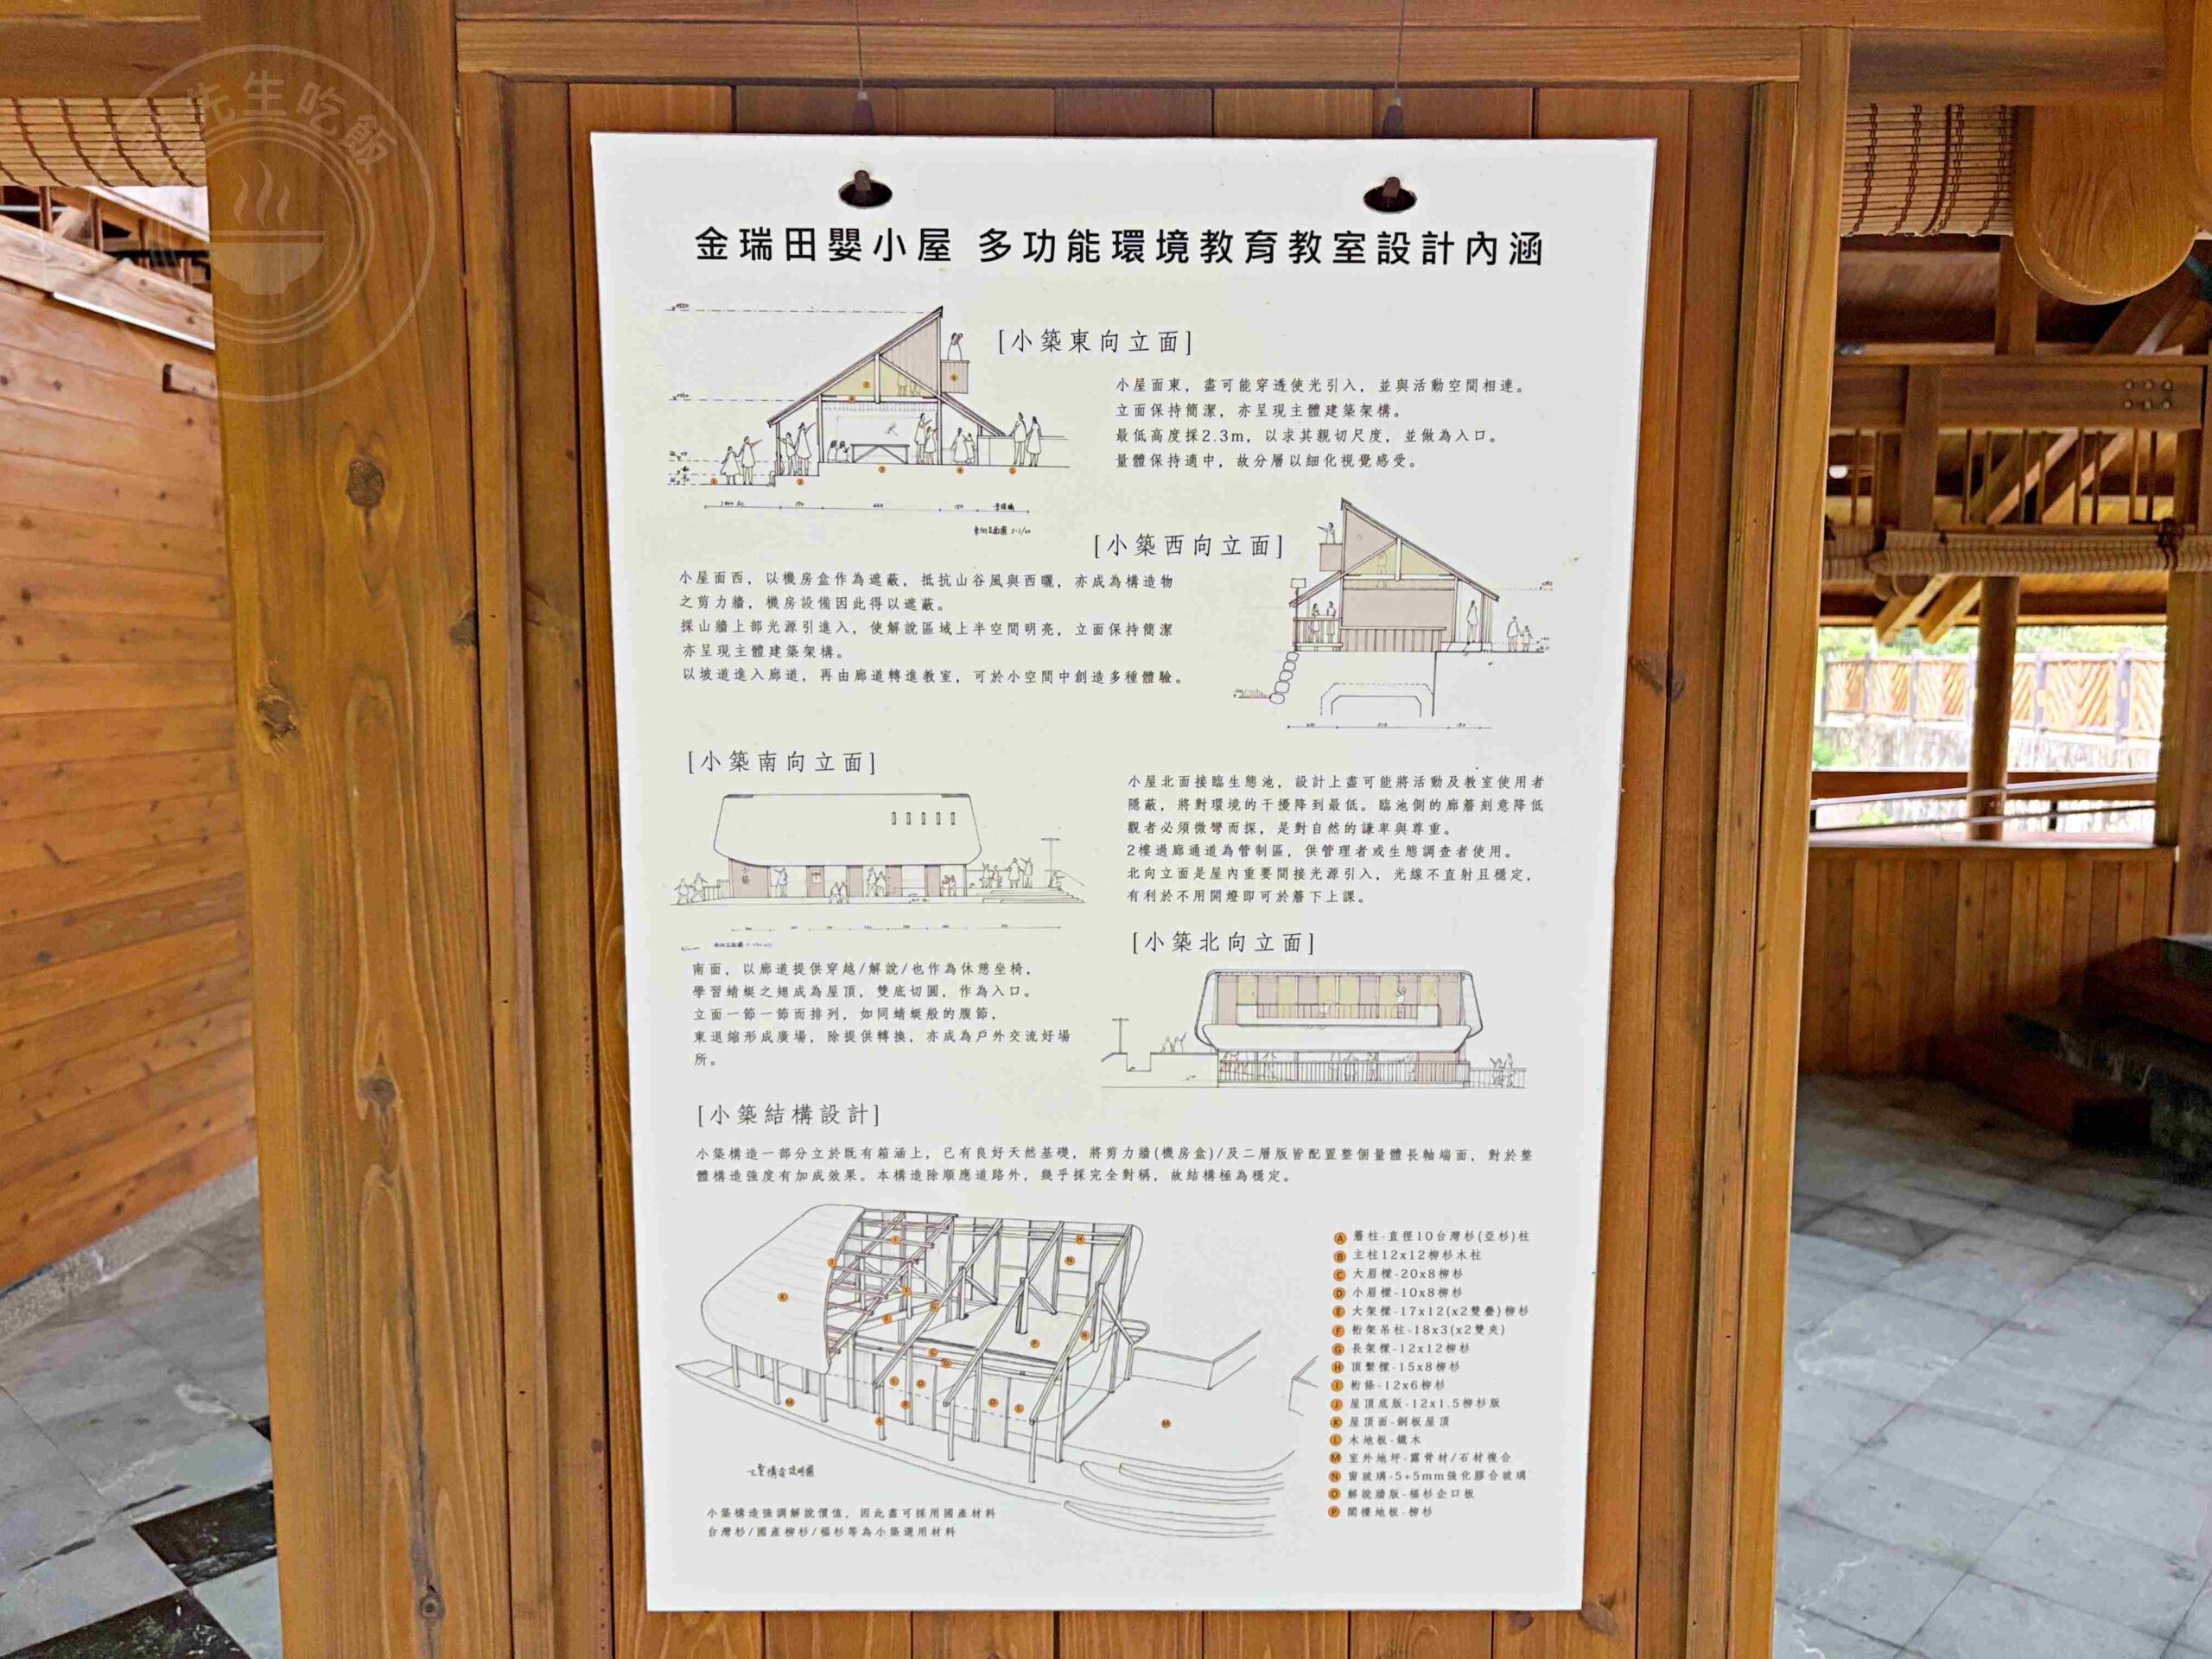 先生吃飯
金瑞田嬰小屋 多功能環境教育教室設計內涵
[小築東向立面]
小屋面東，盡可能穿透使光引入，並與活動空間相連。
立面保持簡潔，亦呈現主體建築架構。
最低高度採2.3m，以求其親切尺度，並做為入口。
量體保持適中，故分層以細化視覺感受。
[小築西向立面]
小屋面西，以機房盒作為遮蔽，抵抗山谷風與西曬，亦成為構造物
之剪力牆，機房設備因此得以遮蔽。
採山牆上部光源引進入，使解說區域上半空間明亮，立面保持簡潔
亦呈現主體建築架構。
以坡道進入廊道，再由廊道轉進教室，可於小空間中創造多種體驗。
[小築南向立面]
南面，以廊道提供穿越/解說/也作為休憩坐椅，
學習蜻蜓之翅成為屋頂，雙底切圓，作為入口。
立面一節一節而排列，如同蜻蜓般的腹節，
東退縮形成廣場，除提供轉換，亦成為戶外交流好場
所。
小屋北面接臨生態池，設計上盡可能將活動及教室使用者
隱蔽，將對環境的干擾降到最低。臨池側的廊簷刻意降低
觀者必須微彎而探，是對自然的謙卑與尊重。
2樓過廊通道為管制區，供管理者或生態調查者使用。
北向立面是屋內重要間接光源引入，光線不直射且穩定，
有利於不用開燈即可於簷下上課。
[小築北向立面]
[小築結構設計]
小築構造一部分立於既有箱涵上，已有良好天然基礎，將剪力牆(機房盒)/及二層版皆配置整個量體長軸端面，對於整
體構造強度有加成效果。本構造除順應道路外，幾乎採完全對稱，故結構極為穩定。
A 簷柱-直徑10台灣杉(亞杉)柱
B 主柱12x12柳杉木柱
C 大眉樑-20x8柳杉
D 小眉樑-10x8柳杉
E 大架樑-17x12(x2雙疊)柳杉
F 桁架吊柱-18x3(x2雙夾)
G 長架樑-12x12柳杉
H 頂繫樑-15x8柳杉
I 桁條-12x6柳杉
J 屋頂底版-12x1.5柳杉版
K 屋頂面-銅板屋頂
L 木地板-鐵木
M 室外地坪-露骨材/石材複合
N 窗玻璃-5+5mm強化膠合玻璃
O 解說牆版-福杉企口板
P 閣樓地板-柳杉
小築構造強調解說價值，因此盡可採用國產材料
台灣杉/國產柳杉/福杉等為小築選用材料